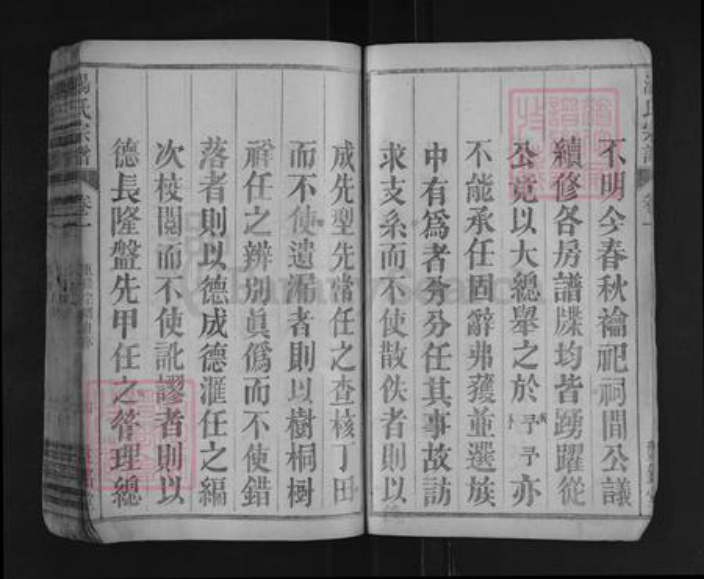 不明今春秋禴祀祠間公議
續修各房譜牒均皆踴躍從
公竟以大總舉之於予予亦
不能承任固辭弗獲並選族
中有爲者分分任其事故訪
求支系而不使散佚者則以
成先型先常任之查核丁田
而不使遺漏者則以樹桐樹
任之辨别眞僞而不使錯
落者則以德成德滙任之編
次校閱而不使訛謬者則以
德長隆盤先甲任之管理總
湯氏宗譜
卷一